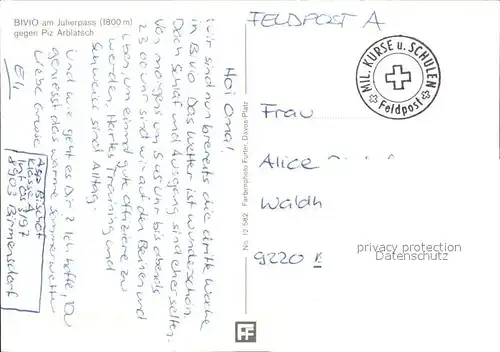 BIVIO am Julierpass (1800 m)
gegen Piz Arblatsch
Hoi Oma!
Wir sind nun bereits die dritte Woche
in Bivio. Das Wetter ist wunderschön.
Doch Schlaf und Ausgang sind eher selten.
Von morgens um 5.45 Uhr bis abends
23.00 Uhr sind wir auf den Beinen und
üben um einmal gute Offiziere zu
werden. Hartes Training und
Schweiss sind Alltag.
Und wie geht es Dir? Ich hoffe, Du
geniesst das warme Sommerwetter
Liebe Grüsse
Asp Bischof
Klasse 4
Inf OS 3/97
8903 Birmensdorf
No. 12 582 Farbenphoto Furter, Davos-Platz
FELDPOST A
MIL. KURSE u. SCHULEN
Feldpost
Frau
Alice
Waldh
9220
privacy protection
VERORDNUNG
FF